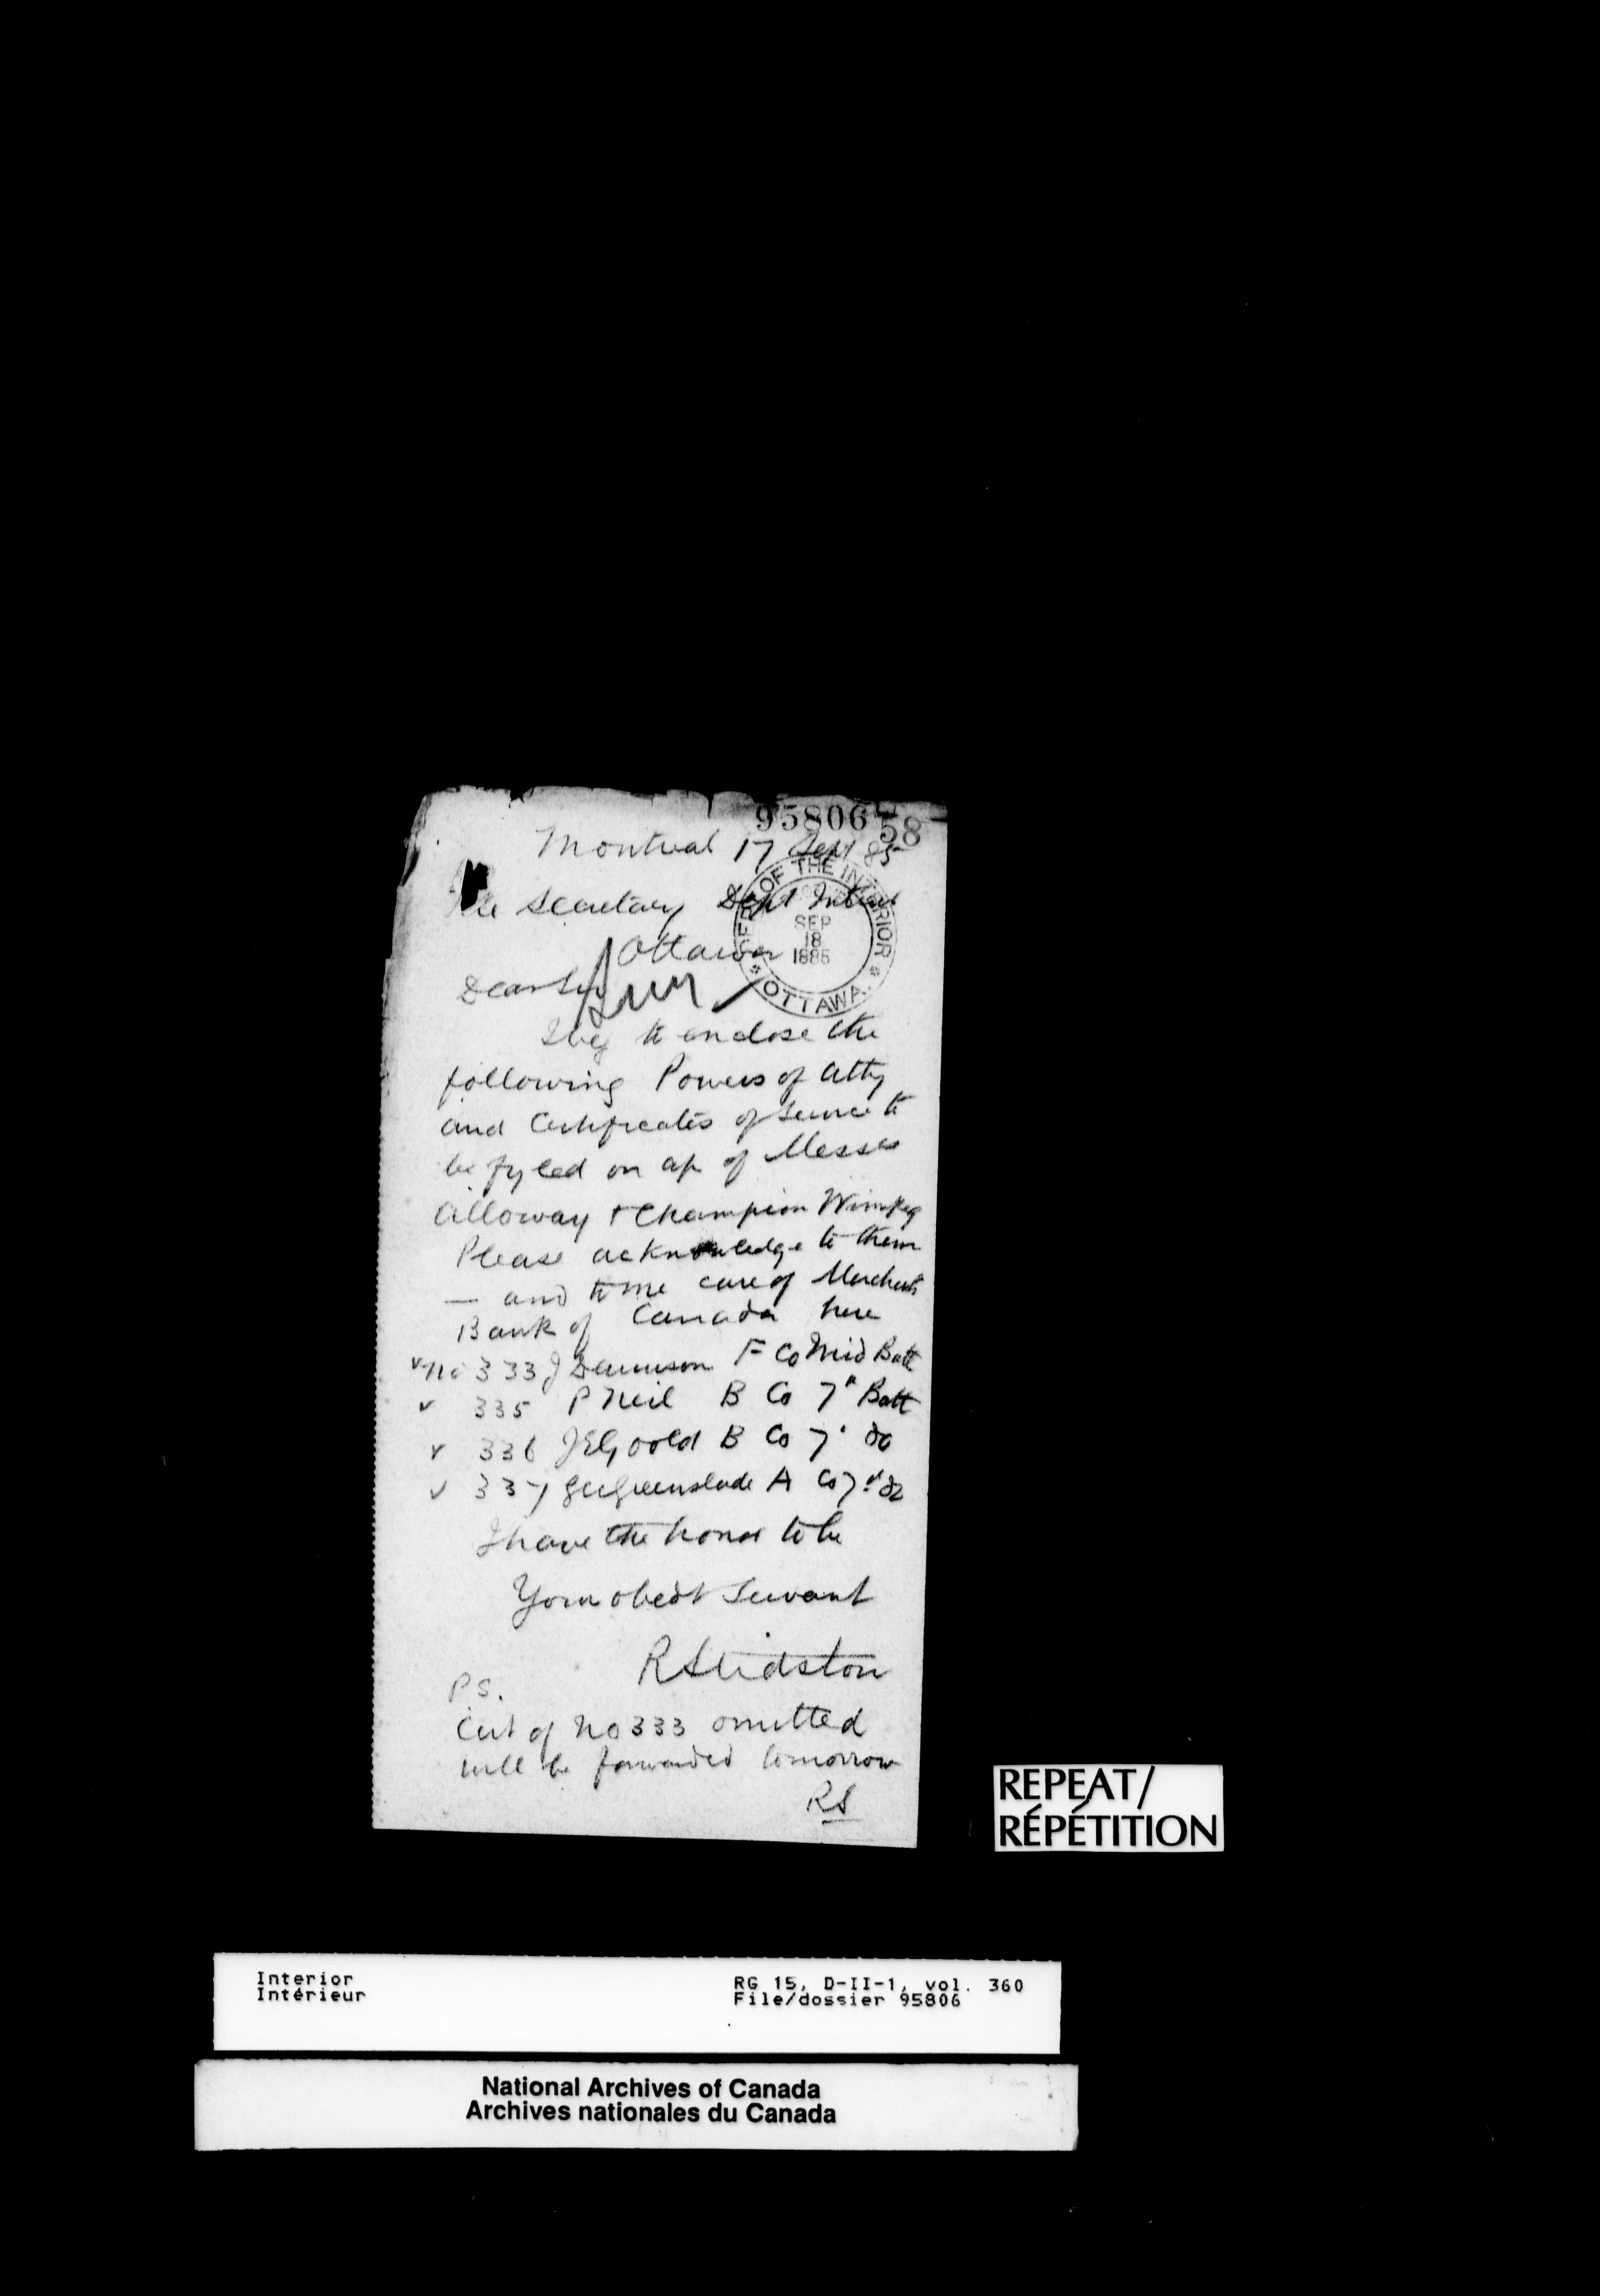 95806 58
Montreal 17 Sept 85
The Secretary Dept Interior
DEPT OF THE INTERIOR
SEP
18
1885
* OTTAWA. *
Ottawa
Dear Sir
I beg to enclose the
following Powers of Atty
and Certificates of Service to
be fyled on ap of Messrs
Alloway + Champion Winnipeg
Please acknowledge to them
— and to me care of Merchants
Bank of Canada here
v No 333 J Dennison F Co Mid Batt
v 335 P Neil B Co 7" Batt
v 336 J E Goold B Co 7" do
v 337 Greenslade A Co 7" do
I have the honor to be
Your obedt Servant
R Stidston
PS.
Cert of No 333 omitted
will be forwarded tomorrow
RS
REPEAT/
RÉPÉTITION
Interior RG 15, D-II-1, vol. 360
Intérieur File/dossier 95806
National Archives of Canada
Archives nationales du Canada